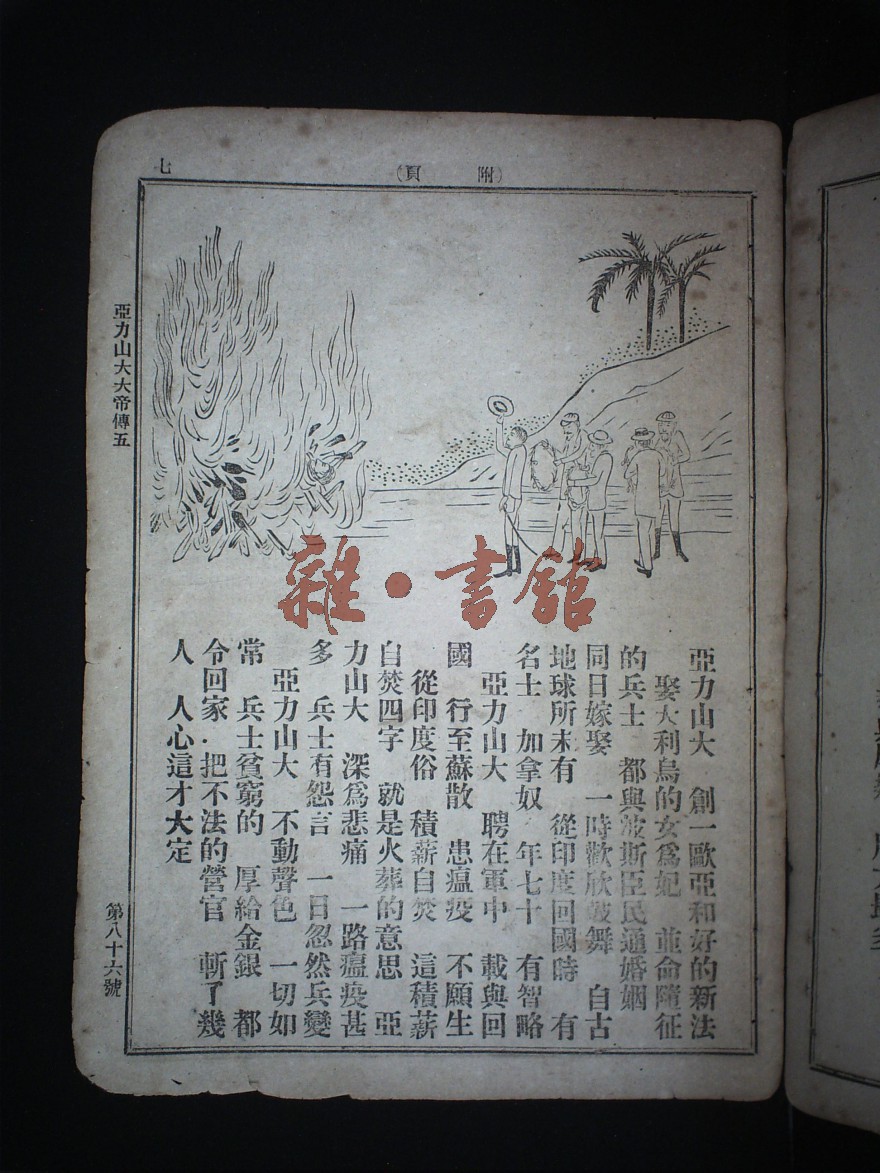 七
（附頁）
亞力山大大帝傳五
第八十六號
雜·書館
亞力山大　創一歐亞和好的新法
娶大利烏的女爲妃　並命隨征
的兵士　都與波斯臣民通婚姻
同日嫁娶　一時歡欣鼓舞　自古
地球所未有　從印度回國時　有
名士　加拿奴　年七十　有智略
亞力山大　聘在軍中　載與回
國　行至蘇散　患瘟疫　不願生
從印度俗　積薪自焚　這積薪
自焚四字　就是火葬的意思　亞
力山大　深爲悲痛　一路瘟疫甚
多　兵士有怨言　一日忽然兵變
亞力山大　不動聲色　一切如
常　兵士貧窮的　厚給金銀　都
令回家．把不法的營官　斬了幾
人　人心這才大定